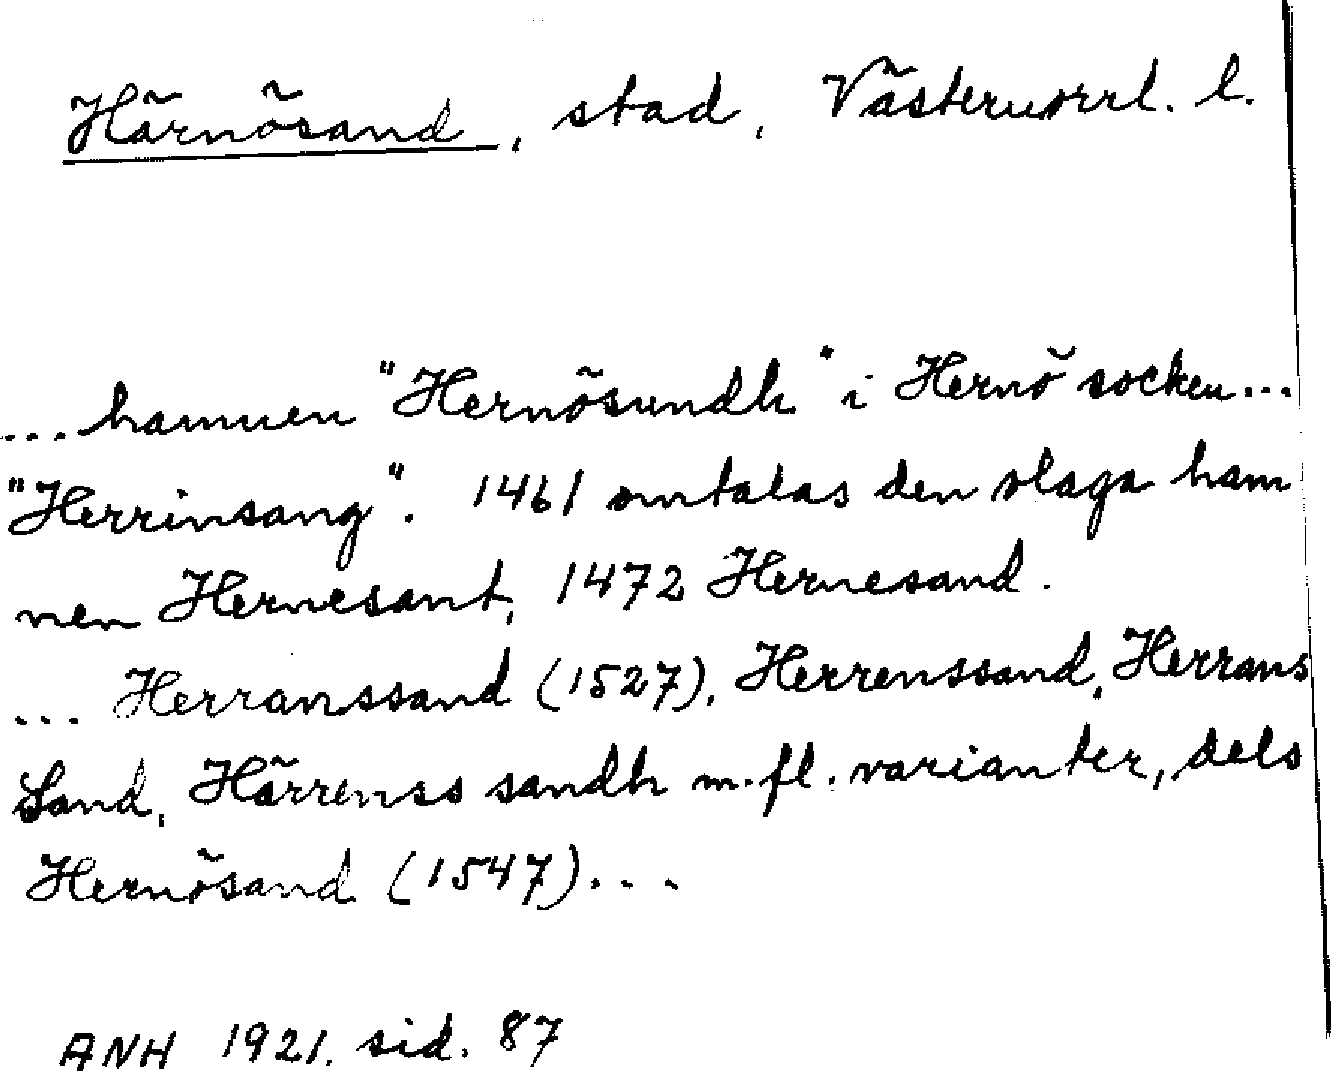 Härnösand, stad, Västernorrl. l.
... hamnen "Hernösundh" i Hernö socken...
"Herrinsang". 1461 omtalas den slaga ham
nen Hernesant, 1472 Hernesand.
... Herranssand (1527), Herrenssand, Herrans
Sand, Härrenss sandh m.fl. varianter, dels
Hernösand (1547)...
ANH 1921. sid. 87